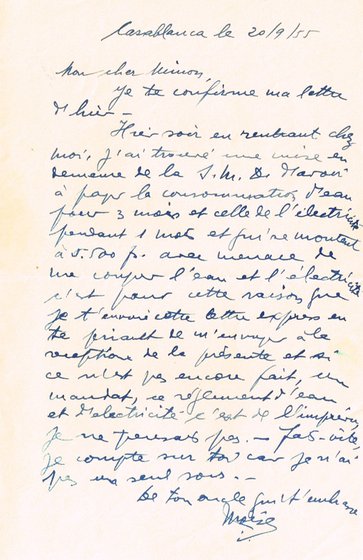 Casablanca le 20/9/55
Mon cher Simon,
Je te confirme ma lettre
d'hier —
Hier soir en rentrant chez
moi, j'ai trouvé une mise en
demeure de la S.M.D. d'avoir
à payer la consommation d'eau
pour 3 mois et celle de l'électricité
pendant 1 mois et qui se montent
à 5.500 f. avec menace de
me couper l'eau et l'électricité
c'est pour cette raison que
je t'envoie cette lettre express en
te priant de m'envoyer à la
réception de la présente et si
ce n'est pas encore fait, un
mandat, ce règlement d'eau
et d'électricité c'est de l'imprévu
je ne pensais pas. — Fais vite
je compte sur toi car je n'ai
pas un seul sous. —
De ton oncle qui t'embrasse
Moïse